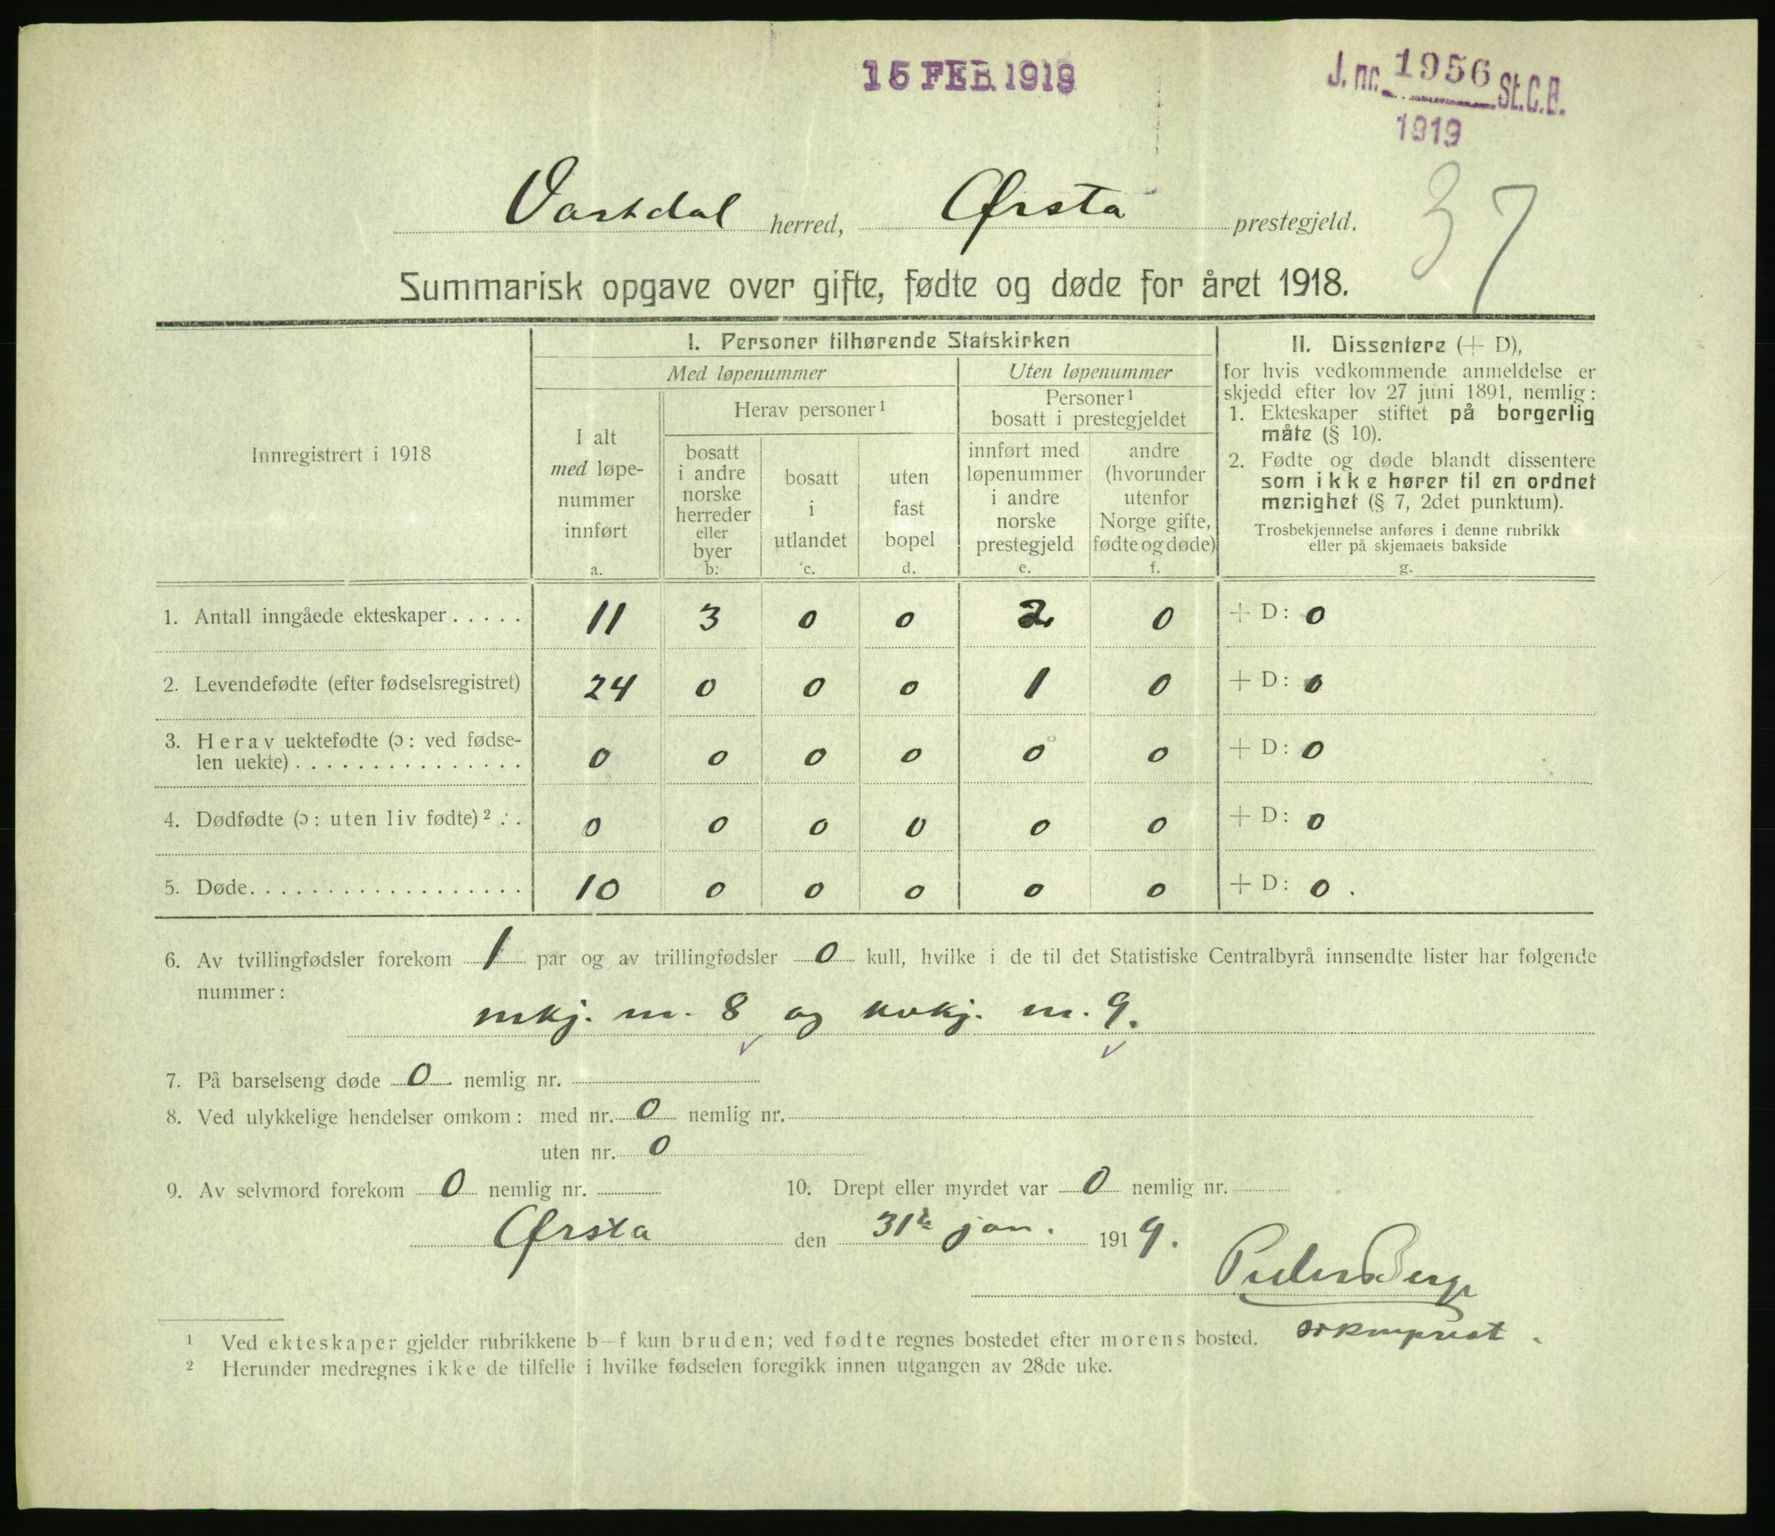 15 FEB. 1919
J. nr. 1956 St.C.B.
1919
37
Vartdal herred, Ørsta prestegjeld.
Summarisk opgave over gifte, fødte og døde for året 1918.
Innregistrert i 1918
I. Personer tilhørende Statskirken
Med løpenummer
Uten løpenummer
I alt
med løpe-
nummer
innført
a.
Herav personer ¹
bosatt
i andre
norske
herreder
eller
byer
b.
bosatt
i
utlandet
c.
uten
fast
bopel
d.
Personer ¹
bosatt i prestegjeldet
innført med
løpenummer
i andre
norske
prestegjeld
e.
andre
(hvorunder
utenfor
Norge gifte,
fødte og døde)
f.
II. Dissentere (+ D),
for hvis vedkommende anmeldelse er
skjedd efter lov 27 juni 1891, nemlig:
1. Ekteskaper stiftet på borgerlig
måte (§ 10).
2. Fødte og døde blandt dissentere
som ikke hører til en ordnet
menighet (§ 7, 2det punktum).
Trosbekjennelse anføres i denne rubrikk
eller på skjemaets bakside
g.
1. Antall inngåede ekteskaper . . . . . 11 3 0 0 2 0 + D: 0
2. Levendefødte (efter fødselsregistret) 24 0 0 0 1 0 + D: 0
3. Herav uektefødte (ɔ: ved fødse-
len uekte) . . . . . . . . . . . . . . . 0 0 0 0 0 0 + D: 0
4. Dødfødte (ɔ: uten liv fødte) ² . . 0 0 0 0 0 0 + D: 0
5. Døde. . . . . . . . . . . . . . . . . . 10 0 0 0 0 0 + D: 0.
6. Av tvillingfødsler forekom 1 par og av trillingfødsler 0 kull, hvilke i de til det Statistiske Centralbyrå innsendte lister har følgende
nummer:
mkj. nr. 8 og kvkj. nr. 9.
7. På barselseng døde 0 nemlig nr.
8. Ved ulykkelige hendelser omkom: med nr. 0 nemlig nr.
uten nr. 0
9. Av selvmord forekom 0 nemlig nr.
10. Drept eller myrdet var 0 nemlig nr.
Ørsta den 31te jan. 1919.
Berge
sokneprest.
¹ Ved ekteskaper gjelder rubrikkene b–f kun bruden; ved fødte regnes bostedet efter morens bosted.
² Herunder medregnes ikke de tilfelle i hvilke fødselen foregikk innen utgangen av 28de uke.